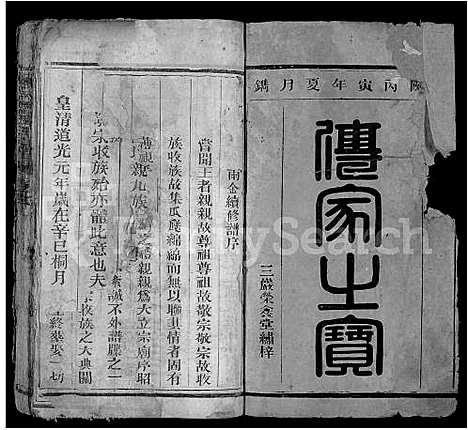 丙寅年夏月鐫
傳家之寶
三嚴榮養堂繡梓
雨金續修譜序
嘗聞王者親親故尊祖尊祖故敬宗敬宗故收
族收族故集瓜瓞綿綿而無以聯其情者固有
親九族 親親為大立宗廟序昭
誠不外譜牒之一
宗收族殆亦體此意也夫
收族之大典關
皇清道光元年歲在辛巳桐月
FamilySearch